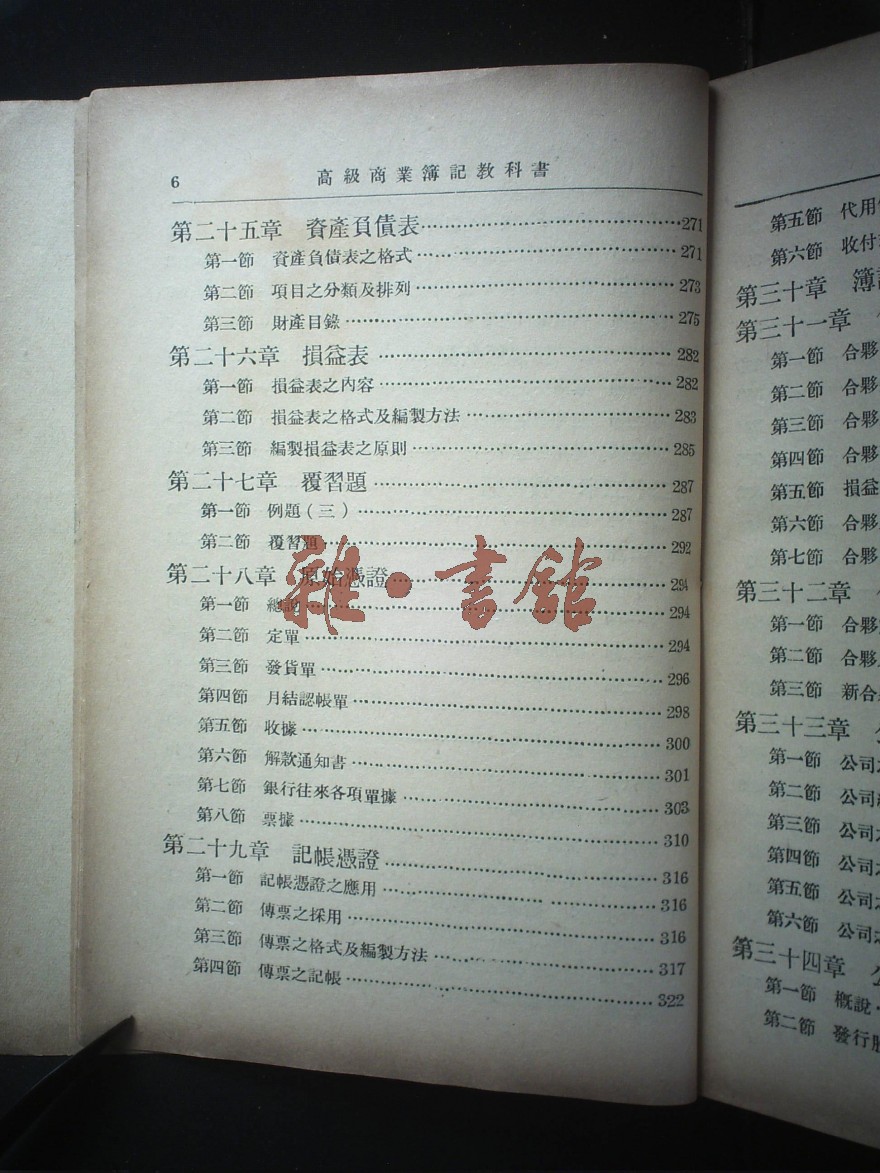 6 高級商業簿記教科書
第二十五章 資產負債表……271
第一節 資產負債表之格式……271
第二節 項目之分類及排列……273
第三節 財產目錄……275
第二十六章 損益表……282
第一節 損益表之內容……282
第二節 損益表之格式及編製方法……283
第三節 編製損益表之原則……285
第二十七章 覆習題……287
第一節 例題(三)……287
第二節 覆習題……292
第二十八章 原始憑證……294
第一節 總說……294
第二節 定單……294
第三節 發貨單……296
第四節 月結認帳單……298
第五節 收據……300
第六節 解款通知書……301
第七節 銀行往來各項單據……303
第八節 票據……310
第二十九章 記帳憑證……316
第一節 記帳憑證之應用……316
第二節 傳票之採用……316
第三節 傳票之格式及編製方法……317
第四節 傳票之記帳……322
雜·書館
第五節 代用
第六節 收付
第三十章 簿
第三十一章
第一節 合夥
第二節 合夥
第三節 合夥
第四節 合夥
第五節 損益
第六節 合夥
第七節 合夥
第三十二章
第一節 合夥
第二節 合夥
第三節 新合
第三十三章
第一節 公司
第二節 公司
第三節 公司
第四節 公司
第五節 公司
第六節 公司
第三十四章
第一節 概說
第二節 發行